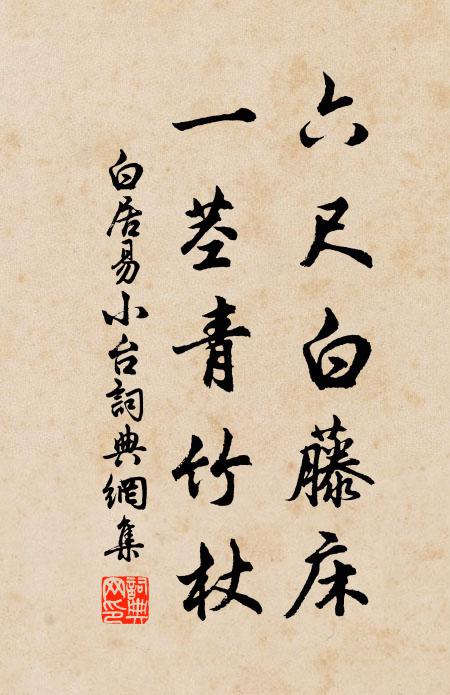 六尺白藤床
一莖青竹杖
白居易小台詞典網集
詞典網印